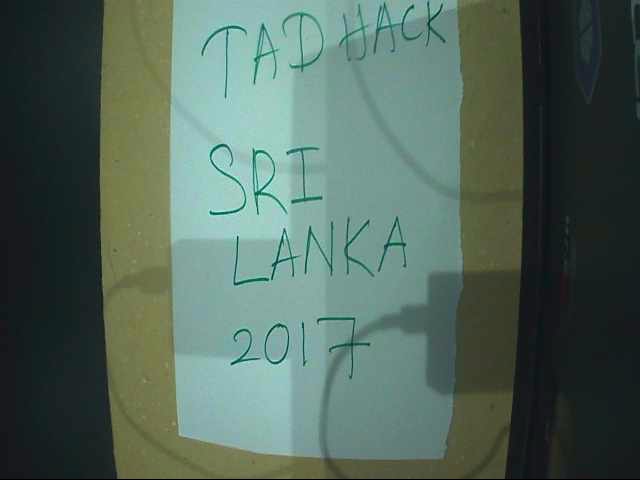 TADHACK
SRI
LANKA
2017